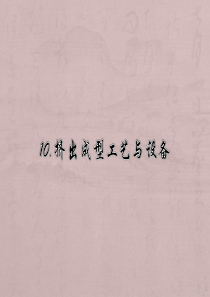 10.挤出成型工艺与设备